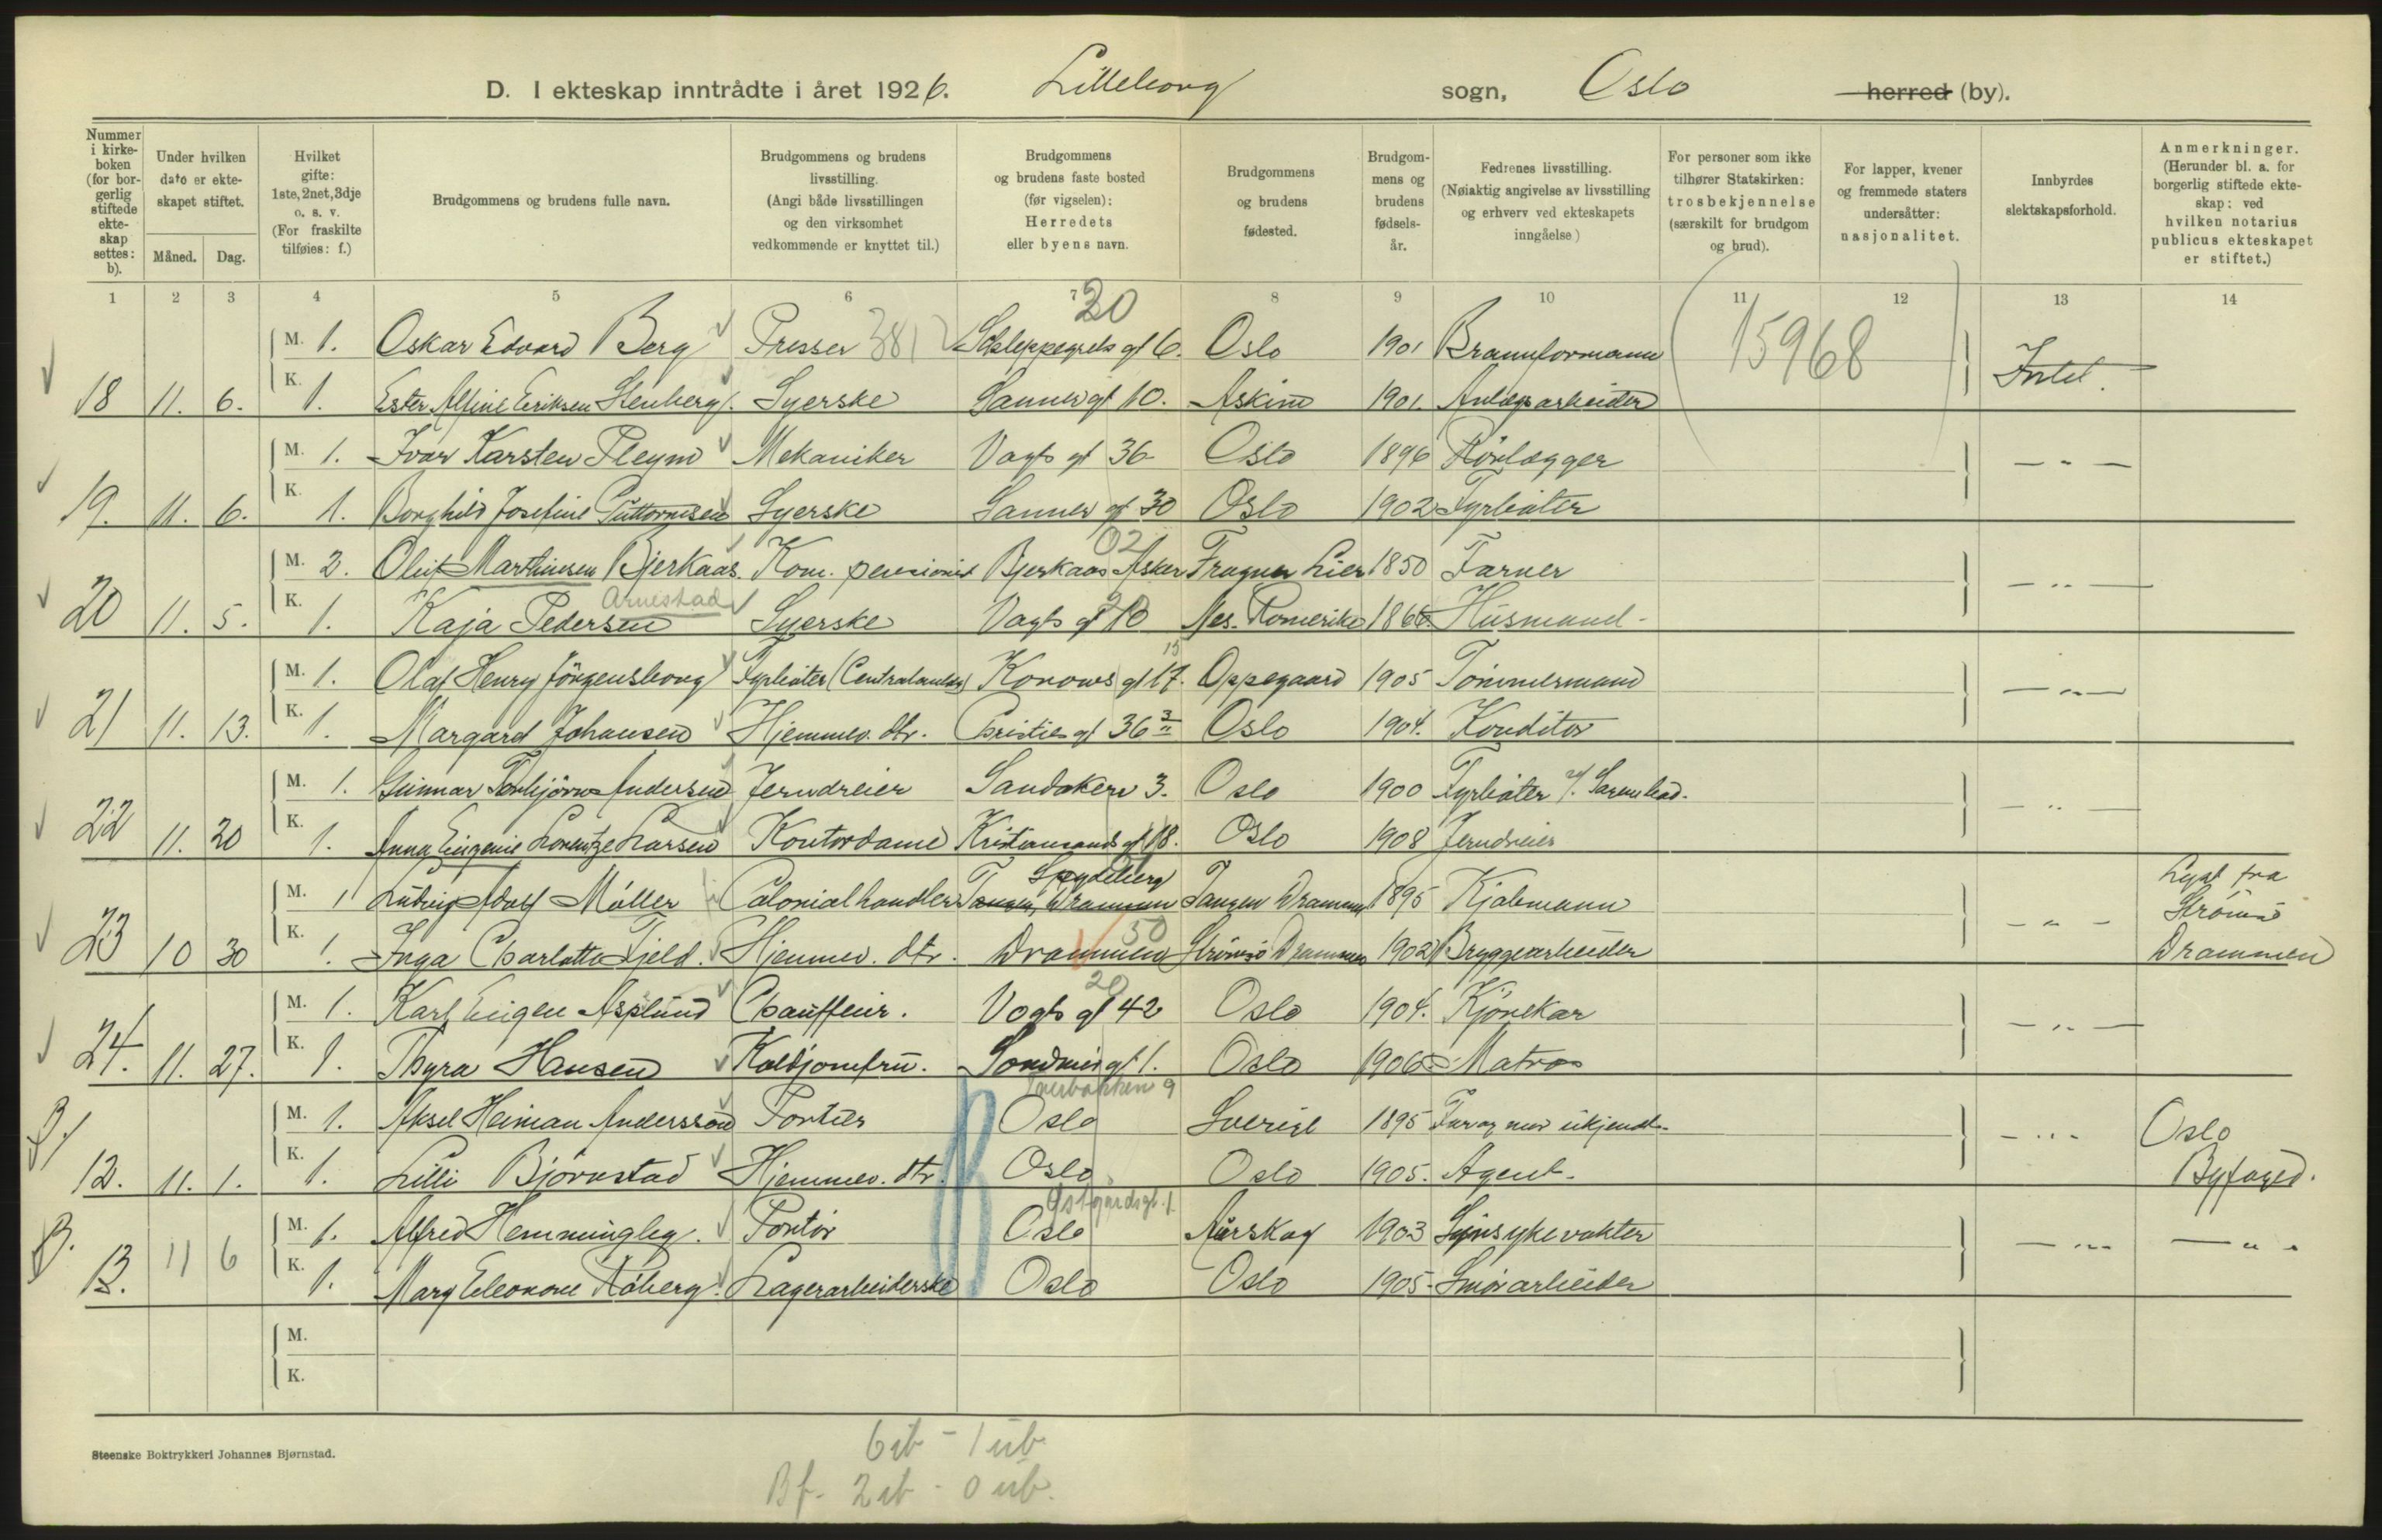 D. I ekteskap inntrådte i året 1926. Lilleborg sogn, Oslo herred (by).
Nummer i kirkeboken (for borgerlig stiftede ekteskap settes: b).
Under hvilken dato er ekteskapet stiftet.
Måned. Dag.
Hvilket gifte: 1ste, 2net, 3dje o. s. v. (For fraskilte tilføies: f.)
Brudgommens og brudens fulle navn.
Brudgommens og brudens livsstilling. (Angi både livsstillingen og den virksomhet vedkommende er knyttet til.)
Brudgommens og brudens faste bosted (før vigselen): Herredets eller byens navn.
Brudgommens og brudens fødested.
Brudgommens og brudens fødselsår.
Fedrenes livsstilling. (Nøiaktig angivelse av livsstilling og erhverv ved ekteskapets inngåelse)
For personer som ikke tilhører Statskirken: trosbekjennelse (særskilt for brudgom og brud).
For lapper, kvener og fremmede staters undersåtter: nasjonalitet.
Innbyrdes slektskapsforhold.
Anmerkninger. (Herunder bl. a. for borgerlig stiftede ekteskap: ved hvilken notarius publicus ekteskapet er stiftet.)
1 2 3 4 5 6 7 8 9 10 11 12 13 14
20
M. 1. Oskar Edvard Berg Presser 381 Schleppegrels gt 6. Oslo 1901 Brannformann 15968
18 11. 6. K. 1. Ester Alfine Eriksen Stenberg. Syerske Sannergt 10. Askim 1901. Anlægsarbeider Intet.
M. 1. Ivar Karsten Pleym Mekaniker Vogts gt 36 Oslo 1896 Rörlægger — " —
19. 11. 6. K. 1. Borghild Josefine Guttormsen Syerske Sanner gt 30 Oslo 1902 Fyrböter
02
M. 2. Oluf Marthinsen Bjerkaas. Kom. pensionist Bjerkaas Asker Fragner Lier 1850 Farver — " —
Arnestad
20 11. 5. K. 1. Kaja Pedersen Syerske Vogts gt 10 Nes. Romerike 1866 Husmand-
15
M. 1. Olaf Henry Jörgensborg Fyrböter (Centralanlæg) Konows gt 17. Oppegaard 1905 Tömmermand — " —
21 11. 13. K. 1. Margard Johansen Hjemmev. dtr. Christies gt 36 3/" Oslo 1904. Konditor
M. 1. Gunnar Torbjörn Andersen Jerndreier Sandakerv 3. Oslo 1900 Fyrböter — " —
22 11. 20 K. 1. Anna Eugenie Lorentze Larsen Kontordame Kristiansands gt 18. Oslo 1908 Jerndreier
Spydeberg
M. 1 Ludvig Adolf Möller Colonialhandler Tangen, Drammen Tangen Drammen 1895 Kjöbmann — " — Lyst fra Strömsö Drammen
50
23 10 30 K. 1. Inga Charlotte Fjeld. Hjemmev. dtr. Drammen Strömsö Drammen 1902 Bryggearbeider
20
M. 1. Karl Eugen Asplund Chauffeur. Vogts gt 42 Oslo 1904. Kjörekar — " —
24. 11. 27. K. 1. Thyra Hansen Koldjomfru. Sondregt 1. Oslo 1906 Matros
M. 1. Aksel Heiman Andersson Portier Oslo Sverige 1895 Far og mor ukjendt. — " — Oslo Byfoged.
12. 11. 1. K. 1. Lilli Björnstad Hjemmev. dtr. Oslo Oslo 1905. Agent.
Østgaardsgt. 1
B. M. 1. Alfred Hemmingby. Portör Oslo Aurskog 1903 Sinsykevokter — " — — " —
13. 11 6 K. 1. Mary Eleonore Röberg. Lagerarbeiderske Oslo Oslo 1905. Smörarbeider
M.
K.
Steenske Boktrykkeri Johannes Bjørnstad.
6 ib - 1 ub
Bf. 2 ib - 0 ub.